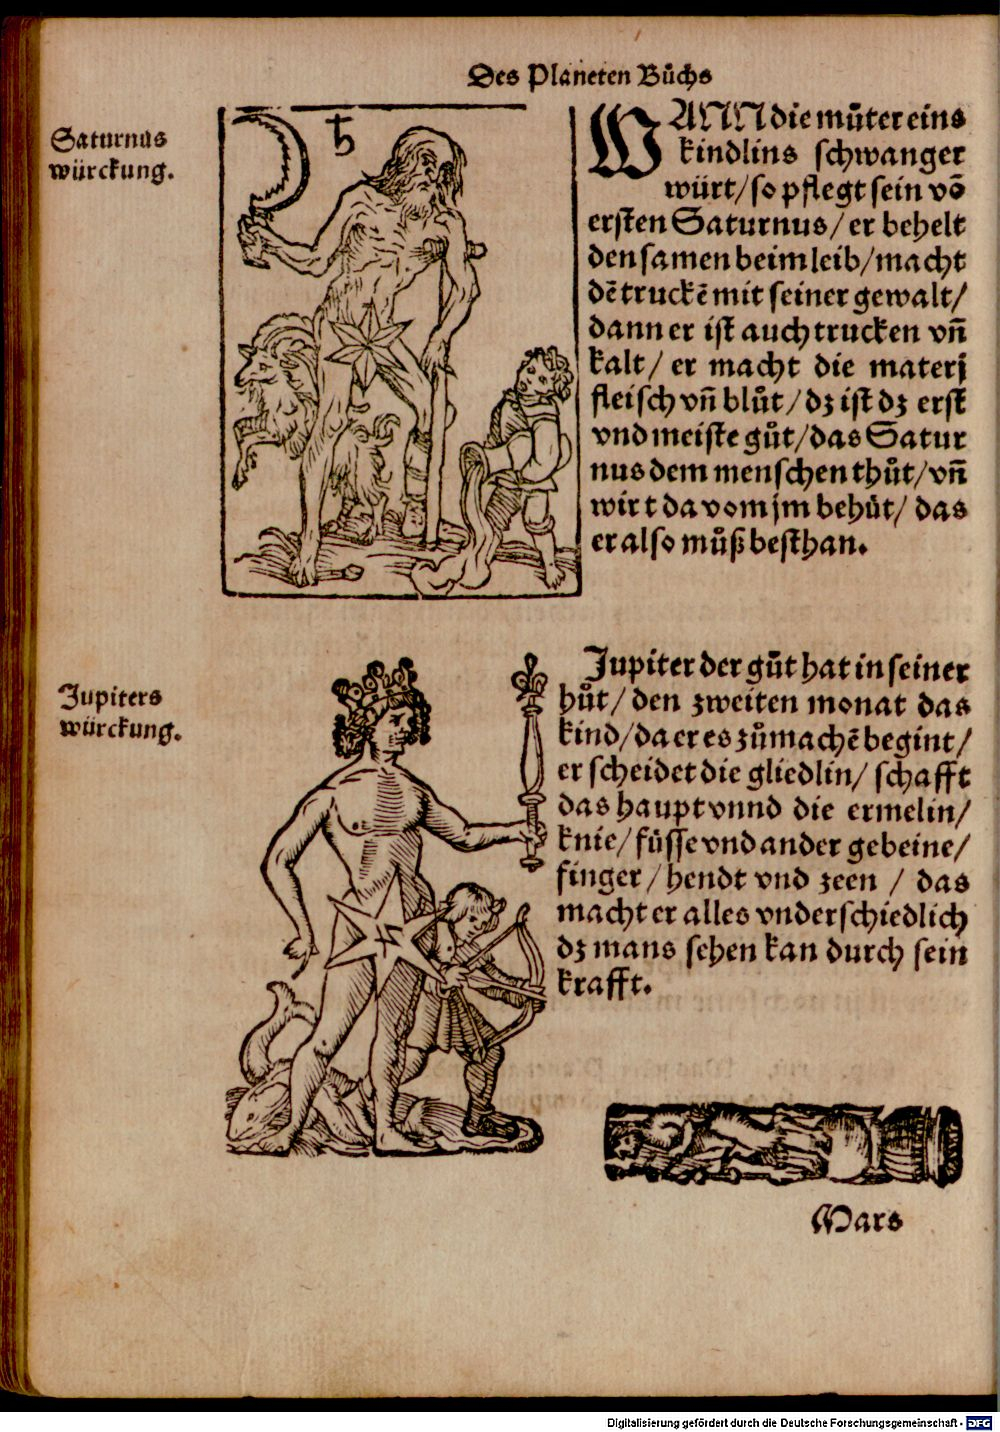 Des Planeten Bůchs
Saturnus
würckung.
♄
WANN die můter eins
kindlins schwanger
würt/ so pflegt sein vō
ersten Saturnus/ er behelt
den samen beim leib/ macht
dē truckē mit seiner gewalt/
dann er ist auch trucken vñ
kalt/ er macht die materj
fleisch vñ blůt/ dz ist dz erst
vnd meiste gůt/ das Satur
nus dem menschen thůt/ vñ
wirt da vom jm behůt/ das
er also můß besthan.
Jupiters
würckung.
Jupiter der gůt hat in seiner
hůt/ den zweiten monat das
kind/ da er es zůmachē begint/
er scheidet die gliedlin/ schafft
das haupt vnnd die ermelin/
knie/ füsse vnd ander gebeine/
finger/ hendt vnd zeen / das
macht er alles vnderschiedlich
dz mans sehen kan durch sein
krafft.
♃
Mars
Digitalisierung gefördert durch die Deutsche Forschungsgemeinschaft - DFG